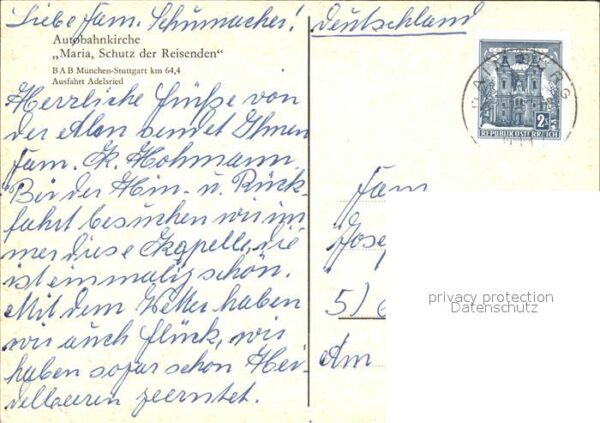 Liebe Fam. Schumacher!
Deutschland
Autobahnkirche
„Maria, Schutz der Reisenden“
BAB München-Stuttgart km 64,4
Ausfahrt Adelsried
Herzliche Grüße von
der Alm sendet Ihnen
Fam. K. Hohmann
Bei der Hin- u. Rück-
fahrt besuchen wir im
mer diese Kapelle, die
ist einmalig schön.
Mit dem Wetter haben
wir auch Glück, wir
haben sogar schon Hei-
delbeeren geerntet.
2S
REPUBLIK ÖSTERREICH
Fam
Josep
5)
Am
privacy protection
Datenschutz